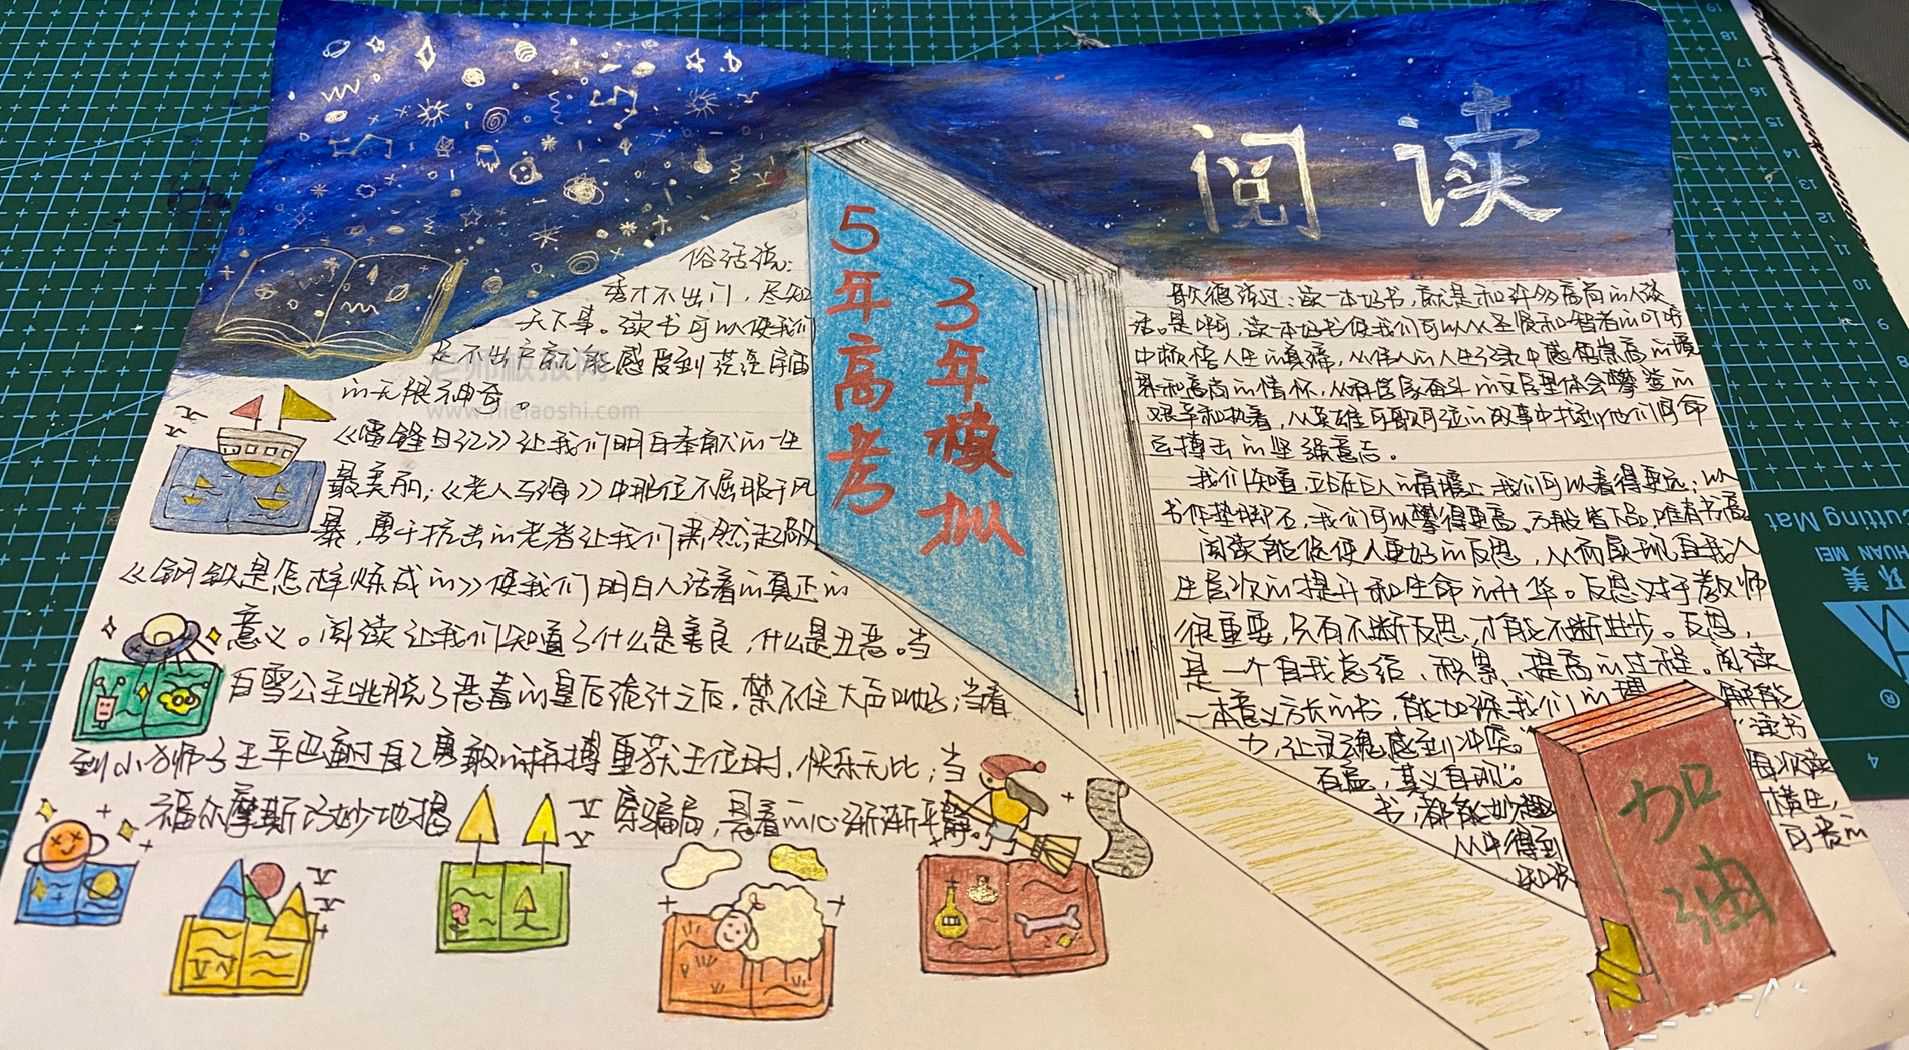 阅读
5年高考
3年模拟
俗话说：
秀才不出门，尽知
天下事。读书可以使我们
足不出户就能感受到茫茫宇宙
的无限神奇。
《雷锋日记》让我们明白奉献的一生
最美丽；《老人与海》中那位不屈服于风
暴，勇于抗击的老者让我们肃然起敬
《钢铁是怎样炼成的》使我们明白人活着的真正的
意义。阅读让我们知道了什么是善良，什么是丑恶。当
白雪公主逃脱了恶毒的皇后诡计之后，禁不住大声叫好；当看
到小狮子王辛巴通过自己勇敢的拼搏重获王位时，快乐无比；当
福尔摩斯巧妙地揭穿骗局，悬着的心渐渐平静。
歌德说过：读一本好书，就是和许多高尚的人谈
话。是啊，读一本好书使我们可以从圣贤和智者的叮咛
中领悟人生的真谛，从伟人的人生记录中感悟崇高的境
界和高尚的情怀，从科学家奋斗的足迹里体会攀登的
艰辛和执着，从英雄可歌可泣的故事中找到他们同命
运搏击的坚强意志。
我们知道，站在巨人的肩膀上，我们可以看得更远；以
书作垫脚石，我们可以攀得更高。万般皆下品，唯有书高
阅读能促使人更好的反思，从而展现自我人
生层次的提升和生命的升华。反思对于教师
很重要，只有不断反思，才能不断进步。反思，
是一个自我总结、积累、提高的过程。阅读
一本意义方长的书，能加深我们的理解能
力，让灵魂感到冲突。“读书
百遍，其义自现”。每次读
书，都能妙趣横生，
从中得到可贵的
知识
加油
老师板报网
www.nielaoshi.com
Cutting Mat
HUAN MEI
环美
®
19
18
17
16
15
14
13
12
11
10
9
8
4